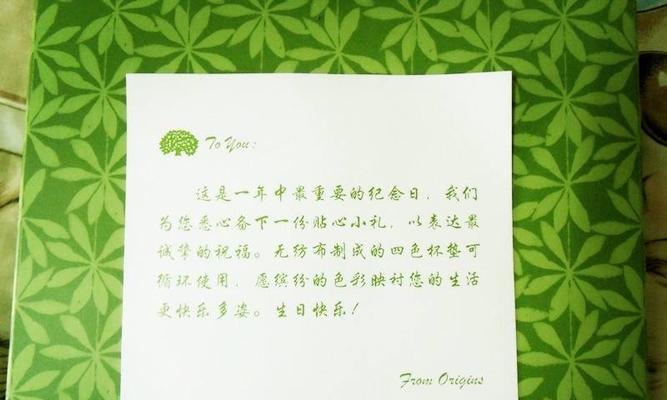 To You:
这是一年中最重要的纪念日，我们
为您悉心备下一份贴心小礼，以表达最
诚挚的祝福。无纺布制成的四色杯垫可
循环使用，愿缤纷的色彩映衬您的生活
更快乐多姿。生日快乐！
From Origins